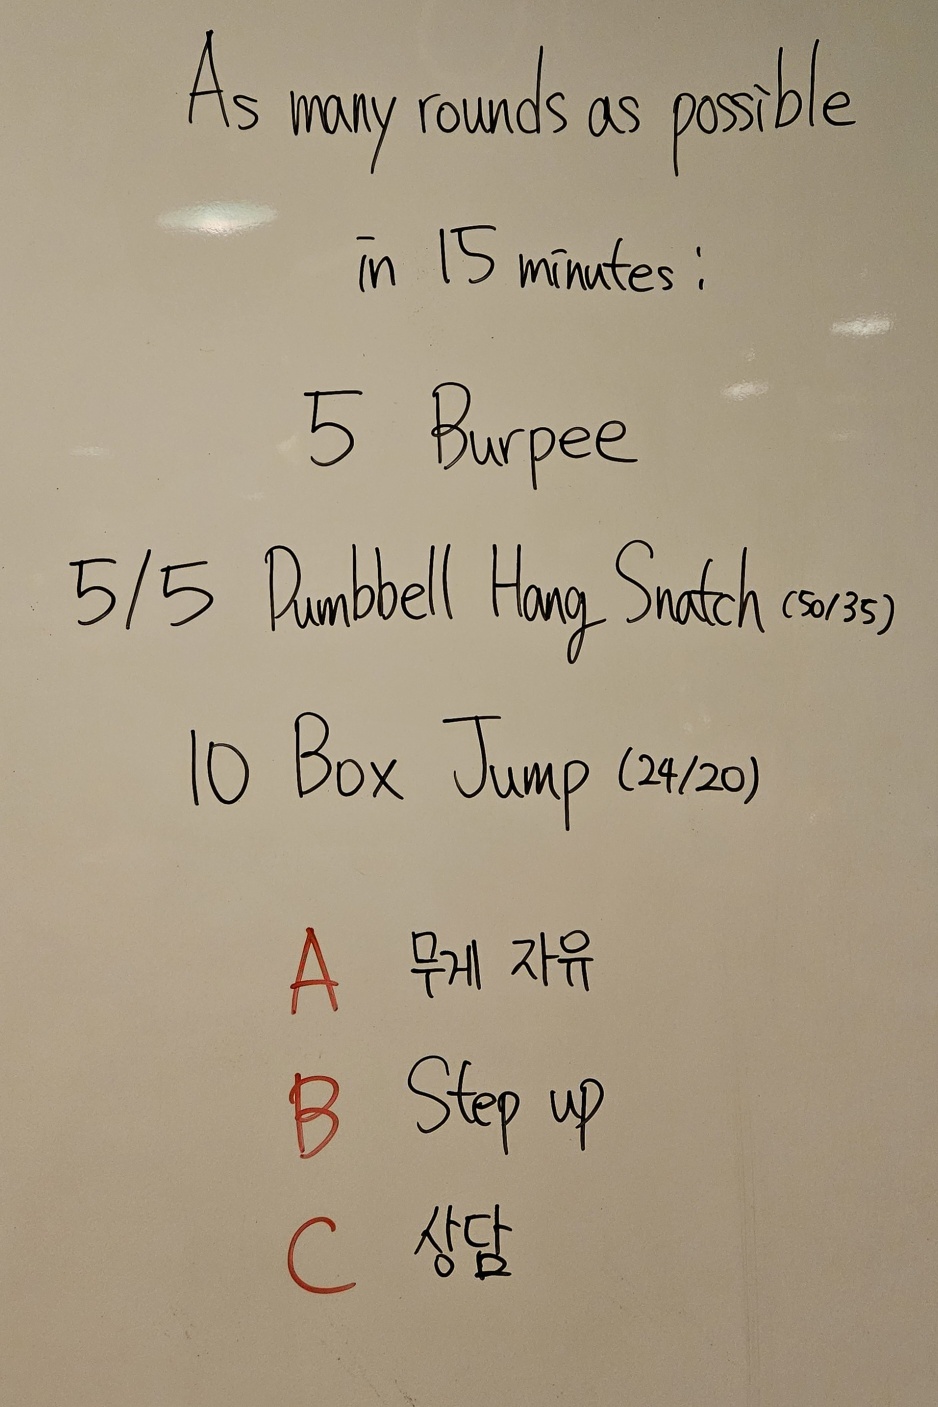 As many rounds as possible
in 15 minutes :
5 Burpee
5/5 Dumbbell Hang Snatch (50/35)
10 Box Jump (24/20)
A 무게 자유
B Step up
C 상담